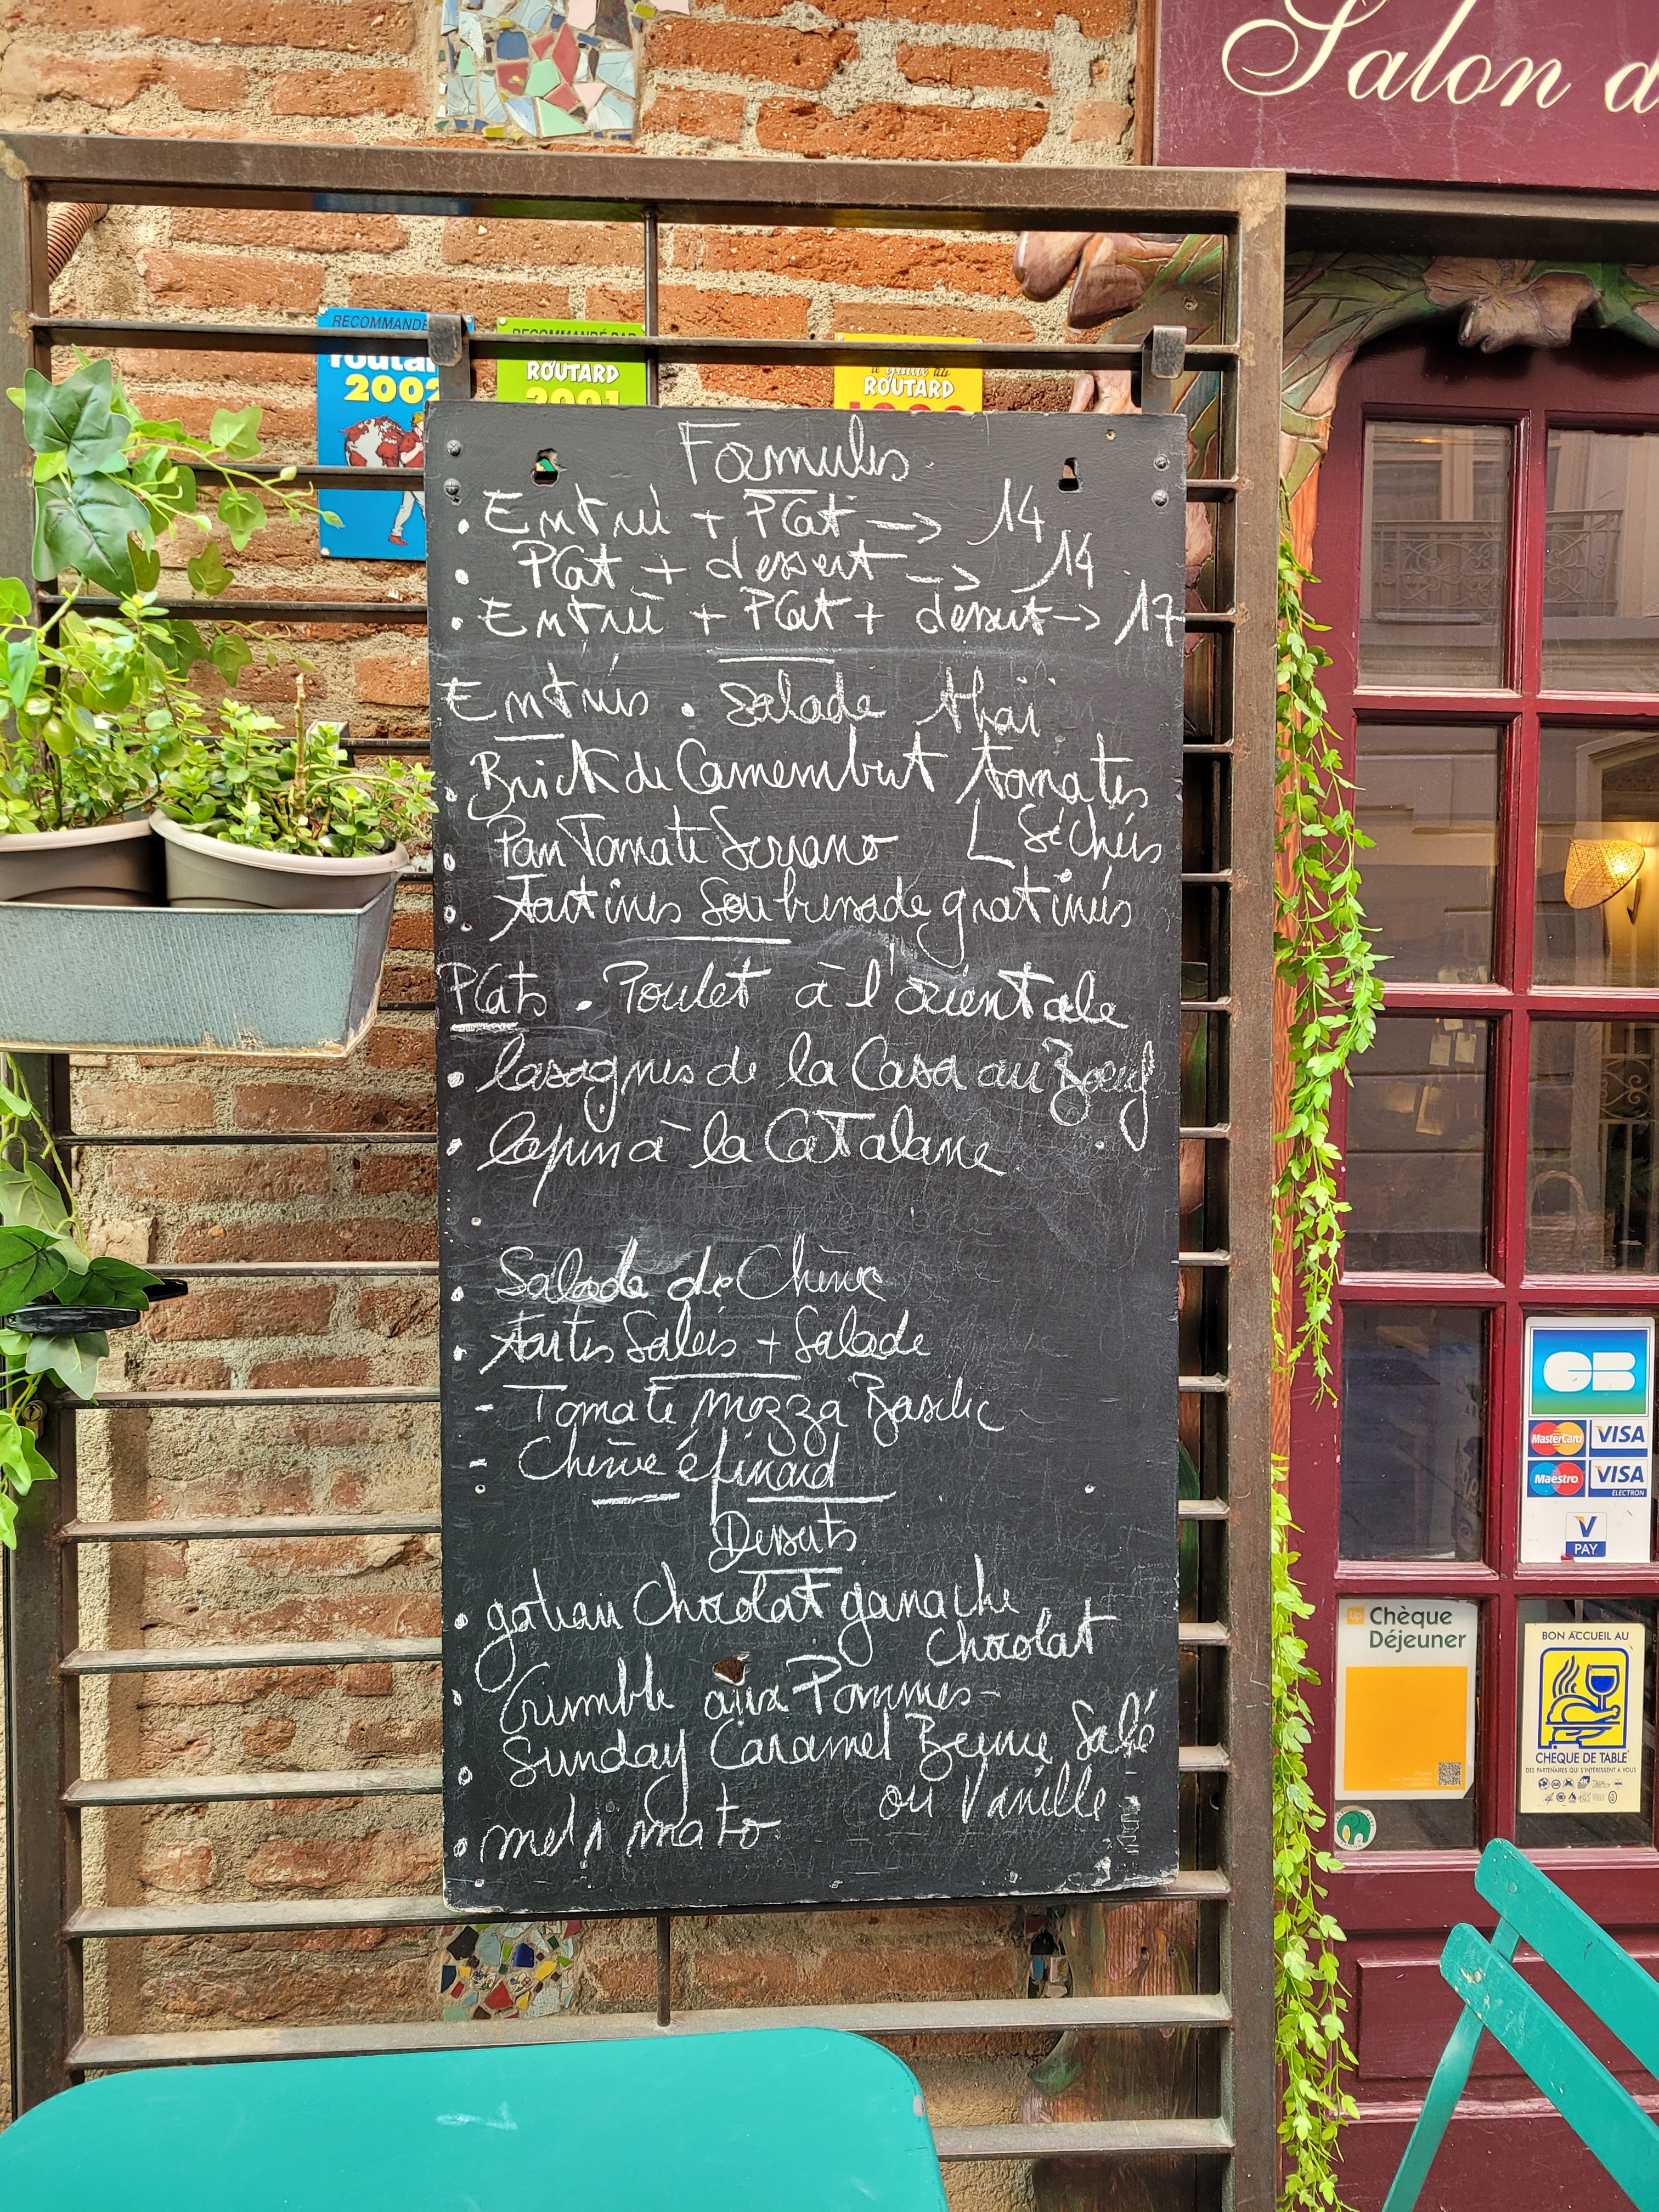 Salon d
RECOMMANDÉ
routard
2002
RECOMMANDÉ PAR
ROUTARD
2001
le guide du
ROUTARD
Formules
• Entrée + Plat -> 14
• Plat + dessert -> 14
• Entrée + Plat + dessert -> 17
Entrées • Salade thaï
• Brick de Camembert tomates
séchées
• Pan Tomate Serrano
• Tartines Soubressade gratinées
Plats • Poulet à l'orientale
• lasagnes de la Casa au Boeuf
• lapin à la Catalane
• Salade de Chèvre
• tartes Salées + Salade
- Tomate mozza Basilic
- Chèvre épinard
Desserts
• gateau Chocolat ganache
Chocolat
• Crumble aux Pommes-
• Sunday Caramel Beurre Salé
ou Vanille
• mel i mato
CB
MasterCard
VISA
Maestro
VISA
ELECTRON
V
PAY
Chèque
Déjeuner
BON ACCUEIL AU
CHEQUE DE TABLE
DES PARTENAIRES QUI S'INTÉRESSENT A VOUS